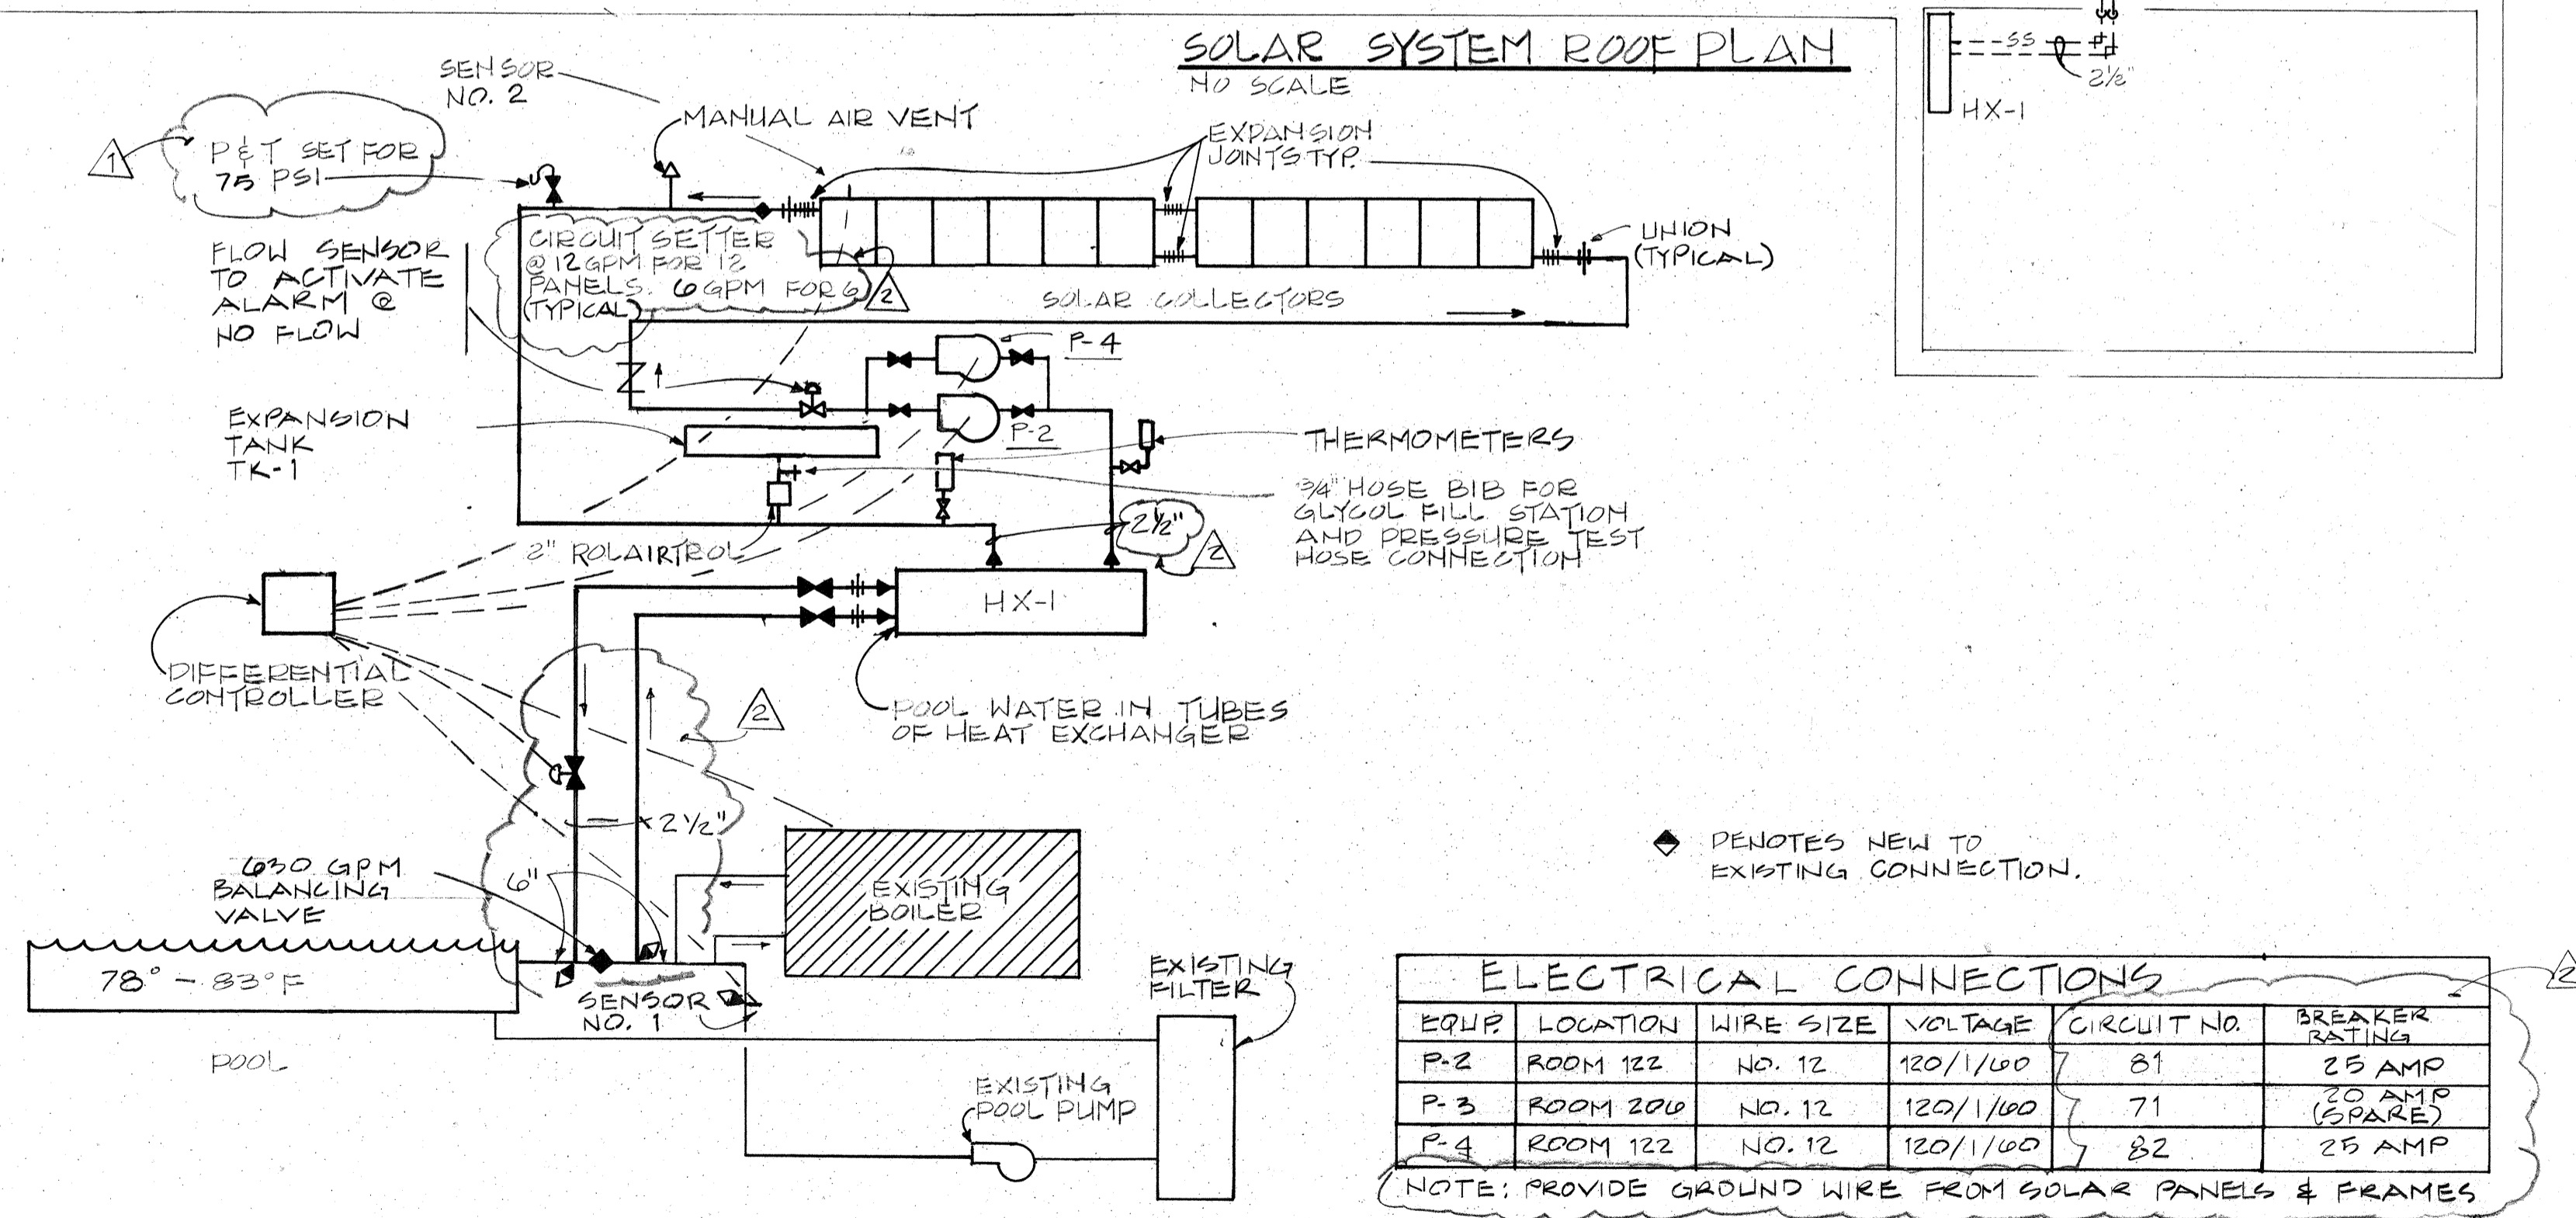 SOLAR SYSTEM ROOF PLAN
NO SCALE
SS
2½"
HX-1
SENSOR
NO. 2
MANUAL AIR VENT
EXPANSION
JOINTS TYP.
1
P & T SET FOR
75 PSI
UNION
(TYPICAL)
FLOW SENSOR
TO ACTIVATE
ALARM @
NO FLOW
CIRCUIT SETTER
@ 12 GPM FOR 12
PANELS. 6 GPM FOR 6
(TYPICAL)
2
SOLAR COLLECTORS
P-4
EXPANSION
TANK
TK-1
P-2
THERMOMETERS
3/4" HOSE BIB FOR
GLYCOL FILL STATION
AND PRESSURE TEST
HOSE CONNECTION
2½"
2
2" ROLAIRTROL
HX-1
DIFFERENTIAL
CONTROLLER
2
POOL WATER IN TUBES
OF HEAT EXCHANGER
2½"
630 GPM
BALANCING
VALVE
6"
EXISTING
BOILER
DENOTES NEW TO
EXISTING CONNECTION.
78° - 83°F
SENSOR
NO. 1
POOL
EXISTING
FILTER
EXISTING
POOL PUMP
ELECTRICAL CONNECTIONS
2
EQUP. LOCATION WIRE SIZE VOLTAGE CIRCUIT NO. BREAKER RATING
P-2 ROOM 122 NO. 12 120/1/60 81 25 AMP
P-3 ROOM 206 NO. 12 120/1/60 71 20 AMP (SPARE)
P-4 ROOM 122 NO. 12 120/1/60 82 25 AMP
NOTE: PROVIDE GROUND WIRE FROM SOLAR PANELS & FRAMES